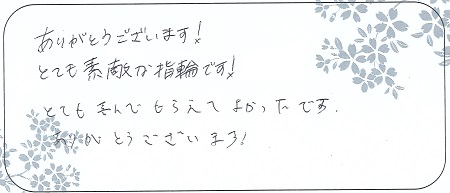 ありがとうございます!
とても素敵な指輪です!
とても喜んでもらえてよかったです.
ありがとうございます!